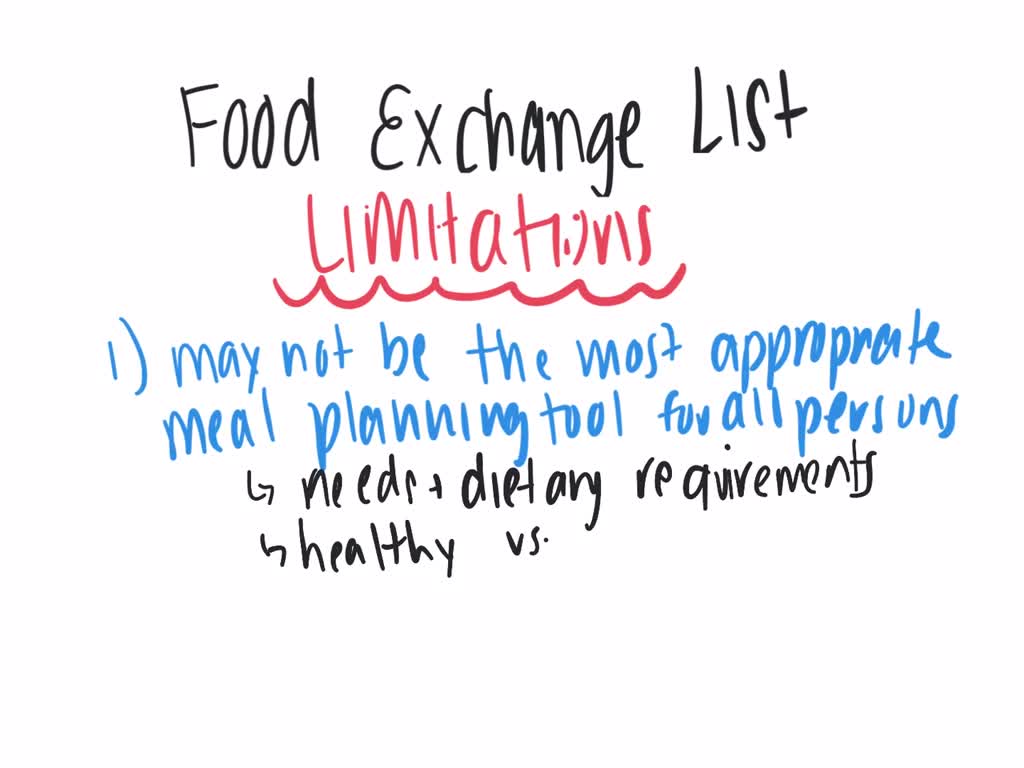 Food Exchange List
Limitations
1) may not be the most appropriate
meal planning tool for all persons
↳ needs + dietary requirements
↳ healthy vs.